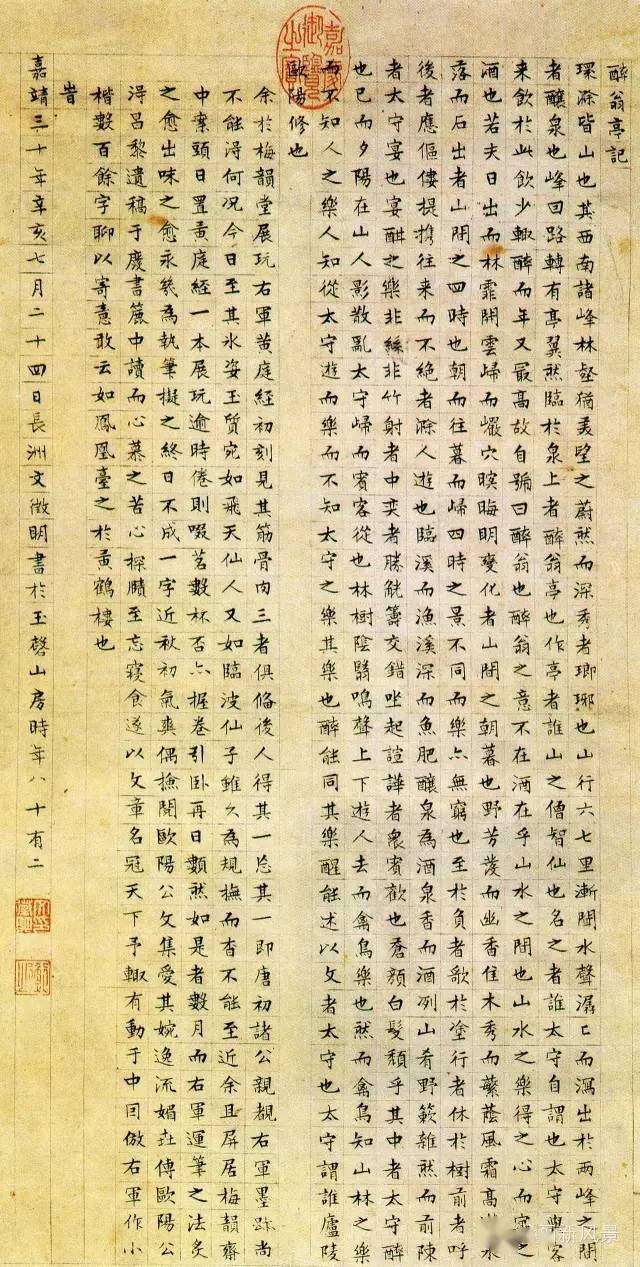 嘉慶御覽之寶
醉翁亭記
環滁皆山也其西南諸峰林壑猶美望之蔚然而深秀者瑯琊也山行六七里漸聞水聲潺〻而瀉出於两峰之間
者釀泉也峰回路轉有亭翼然臨於泉上者醉翁亭也作亭者誰山之僧智仙也名之者誰太守自謂也太守與客
来飲於此飲少輒醉而年又最高故自號曰醉翁也醉翁之意不在酒在乎山水之間也山水之樂得之心而寓之
酒也若夫日出而林霏開雲歸而巖穴暝晦明變化者山間之朝暮也野芳發而幽香佳木秀而蘩蔭風霜高潔水
落而石出者山間之四時也朝而往暮而歸四時之景不同而樂亦無窮也至於負者歌於塗行者休於樹前者呼
後者應傴僂提携往来而不絶者滁人遊也臨溪而漁溪深而魚肥釀泉為酒泉香而酒冽山肴野簌雜然而前陳
者太守宴也宴酣之樂非絲非竹射者中奕者勝觥籌交錯坐起諠譁者衆賓歡也蒼顔白髮頹乎其中者太守醉
也已而夕陽在山人影散亂太守歸而賓客從也林樹陰翳鳴聲上下遊人去而禽鳥樂也然而禽鳥知山林之樂
而不知人之樂人知從太守遊而樂而不知太守之樂其樂也醉能同其樂醒能述以文者太守也太守謂誰廬陵
歐陽修也
余於梅韻堂展玩右軍黄庭經初刻見其筋骨肉三者俱俻後人得其一忘其一即唐初諸公親覩右軍墨跡尚
不能淂何况今日至其氷姿玉質宛如飛天仙人又如臨波仙子雖久為規撫而杳不能至近余且屏居梅韻齋
中案頭日置黄庭經一本展玩逾時倦則啜茗數杯否亦握卷引卧再日類然如是者數月而右軍運筆之法炙
之愈出味之愈永㡬為執筆擬之終日不成一字近秋初氣爽偶撿閱歐陽公文集愛其婉逸流媚世傳歐陽公
淂昌黎遺稿于廢書簏中讀而心慕之苦心探賾至忘寝食遂以文章名冠天下予輙有動于中因倣右軍作小
楷數百餘字聊以寄意敢云如鳳凰臺之於黄鶴樓也
旹
嘉靖三十年辛亥七月二十四日長洲文徴明書於玉磬山房時年八十有二
新风景